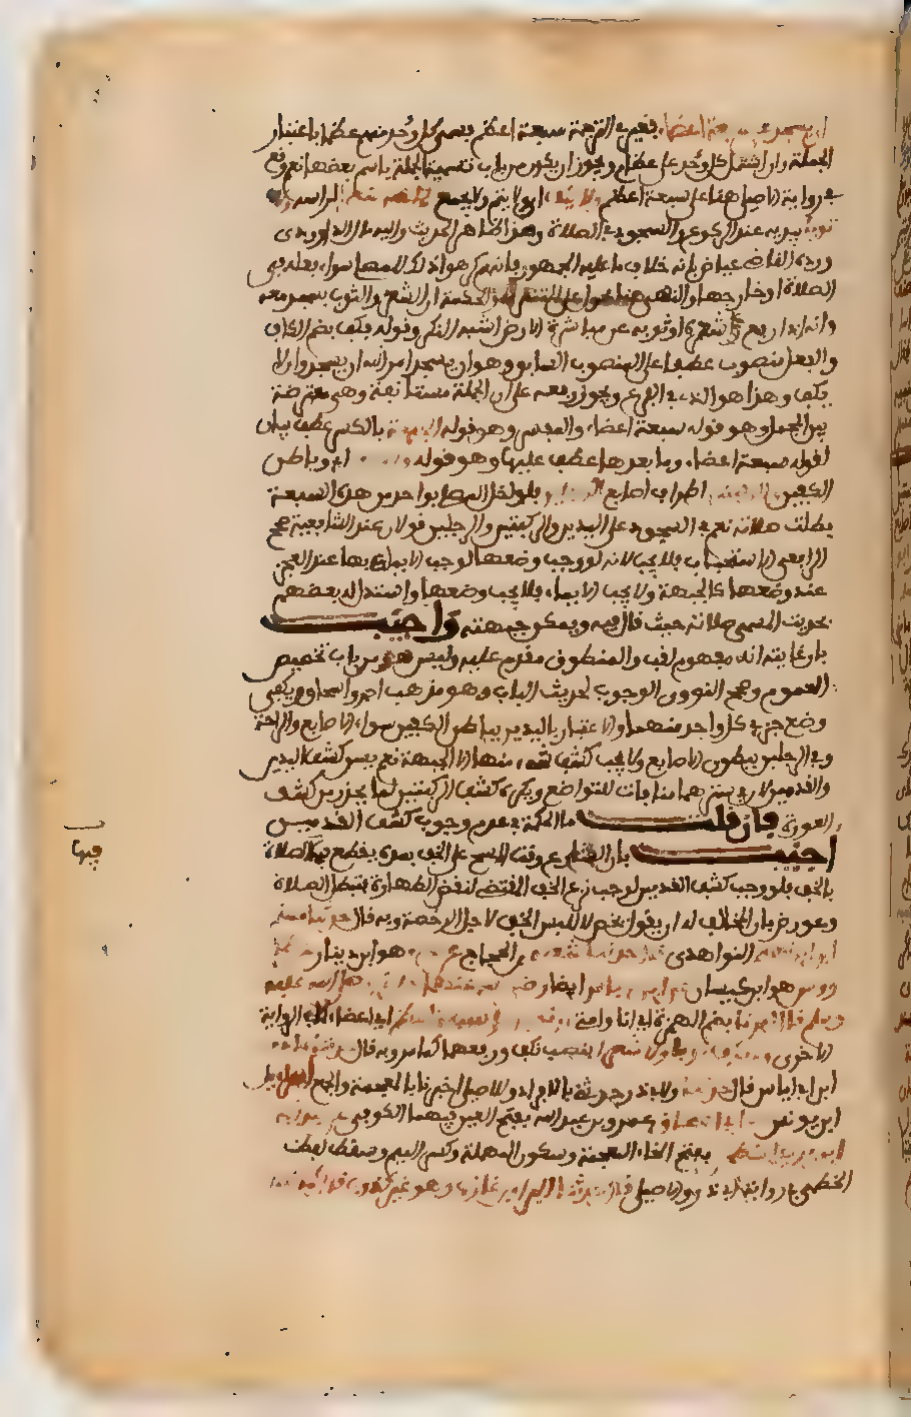 ان يسجد على سبعة اعضاء فغير في الترجمة سبعة اعظم فسمى كل واحد منهم عظما باعتبار
الجملة وان اشتمل كل واحد على عظام ويجوز ان يكون من باب تسمية الجملة باسم بعضها نعم وقع
في رواية الاصيلي هنا على سبعة اعظم ولا يكف اي ولا يضم ولا يجمع شعر الراسه ولا
ثوبه بيديه عند الركوع والسجود في الصلاة وهذا ظاهر الحديث واليه مال الداودي
ورده القاضي عياض بانه خلاف ما عليه الجمهور فانهم كرهوا ذلك للمصلي سواء فعله في
الصلاة او خارجها والنهي هنا محمول على التنزيه والحكمة ان الشعر والثوب يسجد معه
وانه اذا رفع شعره او ثوبه عن مباشرة الارض اشبه المتكبر وقوله يكف بضم الكاف
والفعل منصوب عطفا على المنصوب السابق وهو ان يسجد اي امر الله ان يسجد وان لا
يكف وهذا هو الذي في الفرع ويجوز رفعه على ان الجملة مستانفة وهي معترضة
بين المجمل وهو قوله سبعة اعضاء والمفسر وهو قوله الجبهة بالكسر عطف بيان
لقوله سبعة اعضاء وما بعدها عطف عليها وهو قوله اي وباطن
الكفين اطراف اصابع فلو اخل المصلي بواحد من هذه السبعة
بطلت صلاته نعم في السجود على اليدين والركبتين والرجلين قولان عند الشافعية صحح
الرافعي الاستحباب فلا يجب لانه لو وجب وضعها لوجب الايماء بها عند العجز
عند وضعها كالجبهة ولا يجب الايماء فلا يجب وضعها واستدل له بعضهم
بحديث المسيء صلاته حيث قال فيه ويمكن جبهته واجيب
بان غايته انه مفهوم لقب والمنطوق مقدم عليه وليس هو من باب تخصيص
العموم وصحح النووي الوجوب لحديث الباب وهو مذهب احمد واسحاق ويكفي
وضع جزء كل واحد منهما والاعتبار باليدين بباطن الكفين سواء الاصابع والراحة
وفي الرجلين ببطون الاصابع ولا يجب كشف شيء منها الا الجبهة نعم يسن كشف اليدين
والقدمين لان في سترهما منافات للتواضع ويكره كشف الركبتين لما يحذر من كشف
العورة فان قلت ما الحكمة في عدم وجوب كشف القدمين
اجيب بان الشارع وقت المسح على الخف بمدة يقطع فيها الصلاة
بالخف فلو وجب كشف القدمين لوجب نزع الخف المقتضي لنقض الطهارة فتبطل الصلاة
وعورض بان المخالف له ان يقول يخص لابس الخف لاجل الرخصة وبه قال حدثنا مسلم
ابن ابراهيم الفراهدي قال حدثنا شعبة بن الحجاج عن عمرو هو ابن دينار عن
طاووس هو ابن كيسان عن ابن عباس ايضا رضي الله عنهما عن النبي صلى الله عليه
وسلم قال امرنا بضم الهمزة اي انا وامته اي اعضاء كما في الرواية
الاخرى ولا نكف ثوبا ولا شعرا بنصب نكف ورفعها كما مر وبه قال حدثنا ادم
ابن ابي اياس قال حدثنا ولابي ذر حدثني بالافراد وللاصيلي اخبرنا بالجمع اسرائيل
ابن يونس عن ابي اسحاق عمرو بن عبد الله بفتح العين فيهما الكوفي عن عبد الله
ابن يزيد الخطمي بفتح الخاء المعجمة وسكون المهملة وكسر الميم وسقط لفظ
الخطمي في رواية ابي ذر والاصيلي قال حدثنا البراء بن عازب وهو غير كذوب قال كنا
فيها